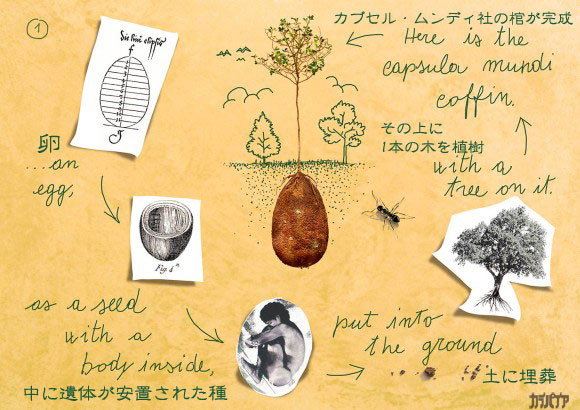 1
die lini elipsis
f
g
カプセル・ムンディ社の棺が完成
Here is the
capsula mundi
coffin.
その上に
1本の木を植樹
with a
tree on it.
卵
...an
egg,
Fig. 4
as a seed
with a
body inside,
中に遺体が安置された種
put into
the ground
土に埋葬
カラパイア